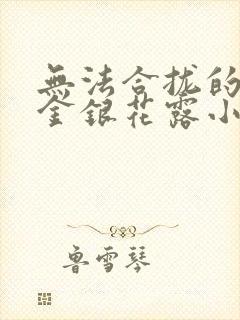 無法合拢的
金銀花露小
魯雪琴